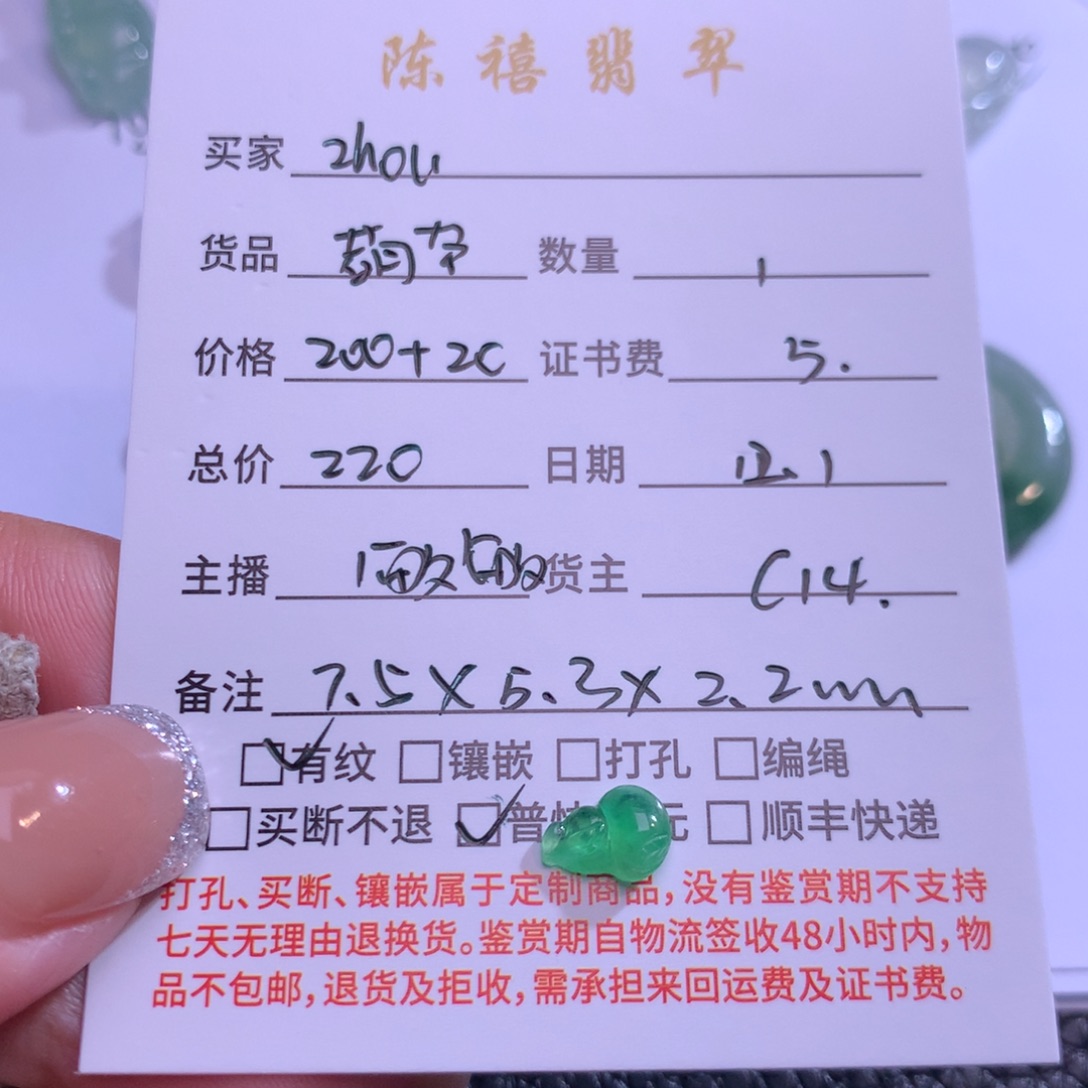 陈禧翡翠
买家 zhou
货品 葫芦 数量 1
价格 200+20 证书费 5.
总价 220 日期 12.1
主播 货主 C14.
备注 7.5X5.3X2.2mm
有纹 镶嵌 打孔 编绳
买断不退 普快 元 顺丰快递
打孔、买断、镶嵌属于定制商品,没有鉴赏期不支持
七天无理由退换货。鉴赏期自物流签收48小时内,物
品不包邮,退货及拒收,需承担来回运费及证书费。